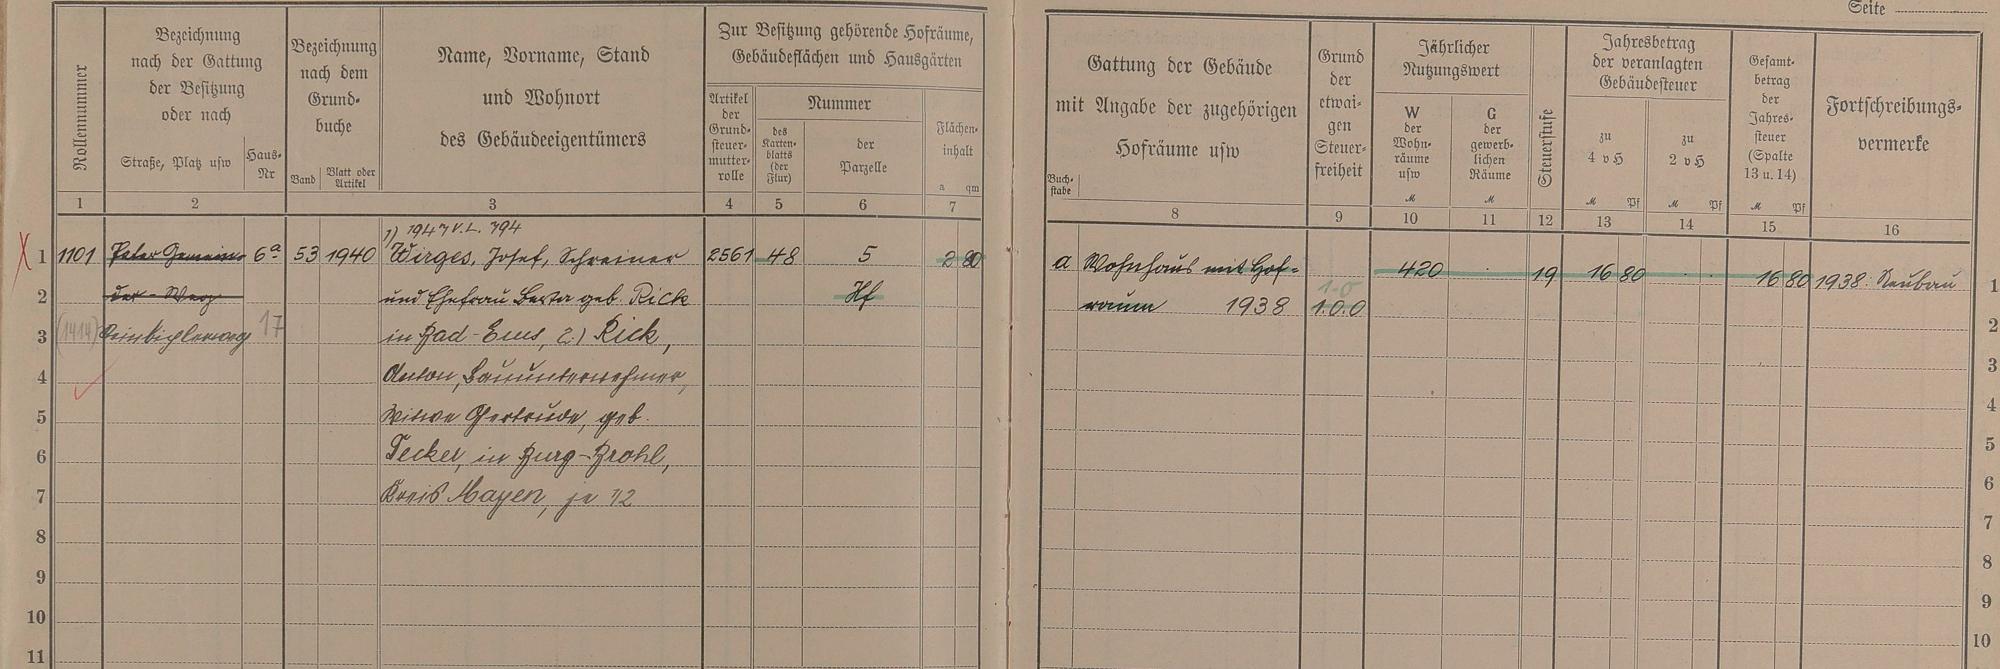 Seite
Rollennummer
Bezeichnung
nach der Gattung
der Besitzung
oder nach
Straße, Platz usw
Haus-
Nr
Bezeichnung
nach dem
Grund-
buche
Band
Blatt oder
Artikel
Name, Vorname, Stand
und Wohnort
des Gebäudeeigentümers
Zur Besitzung gehörende Hofräume,
Gebäudeflächen und Hausgärten
Artikel
der
Grund-
steuer-
mutter-
rolle
Nummer
des
Karten-
blatts
(der
Flur)
der
Parzelle
Flächen-
inhalt
a qm
1 2 3 4 5 6 7
Buch-
stabe
Gattung der Gebäude
mit Angabe der zugehörigen
Hofräume usw
Grund
der
etwai-
gen
Steuer-
freiheit
Jährlicher
Nutzungswert
W
der
Wohn-
räume
usw
M
G
der
gewerb-
lichen
Räume
M
Steuerstufe
Jahresbetrag
der veranlagten
Gebäudesteuer
zu
4 v H
M Pf
zu
2 v H
M Pf
Gesamt-
betrag
der
Jahres-
steuer
(Spalte
13 u. 14)
M Pf
Fortschreibungs-
vermerke
8 9 10 11 12 13 14 15 16
1) 1947 V.L. 794
1 1101 Peter Gemein- 6a 53 1940 Wirges, Josef, Schreiner 2561 48 5 2 80
2 der - Weg und Ehefrau Berta geb. Rick Hf
3 (1414) 17 in Bad-Ems, 2.) Rick,
4 Anton, Bauunternehmer,
5 Witwe Gertrude, geb.
6 Decker, in Burg-Brohl,
7 Kreis Mayen, je 1/2
8
9
10
11
a Wohnhaus mit Hof- 420 . 19 16 80 . . 16 80 1938: Neubau 1
raum 1938 1.0.0 2
3
4
5
6
7
8
9
10